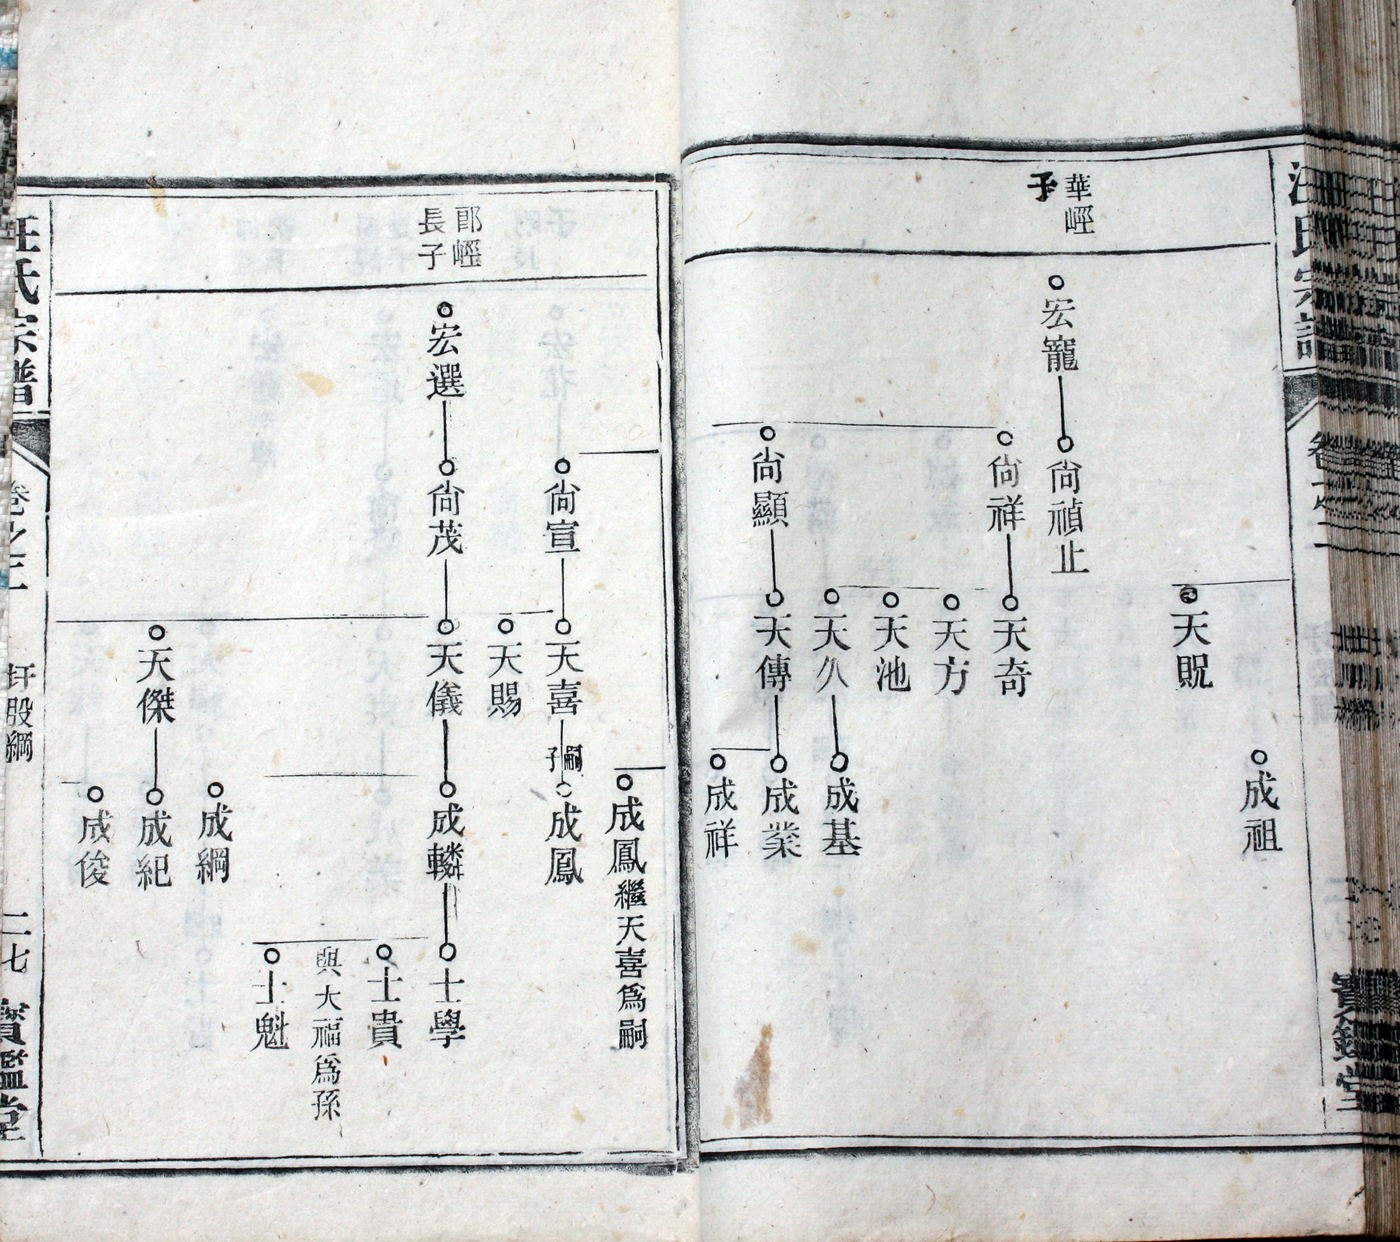 汪氏宗譜
卷之二
寶鑑堂
成祖
天貺
華崼
子
宏寵
尙禎止
尙祥
天奇
天方
天池
天久
成基
尙顯
天傳
成業
成祥
成鳳繼天喜爲嗣
尙宣
天喜
嗣子
成鳳
天賜
郎崼
長子
宏選
尙茂
天儀
成轔
士學
士貴
與大福爲孫
士魁
成綱
天傑
成紀
成俊
汪氏宗譜
卷之二
二七
寶鑑堂